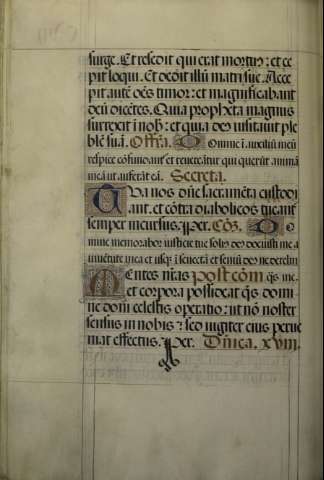 surge. Et resedit qui erat mortuus: et ce
pit loqui. Et dedit illũ matri sue. Acce
pit autẽ oẽs timor: et magnificabant
deũ dicẽtes. Quia propheta magnus
surrexit ĩ nob: et quia deus uisitauit ple
bẽ suã. Offrã. Domine ĩ auxiliũ meũ
respice cõfundant et reuereãtur qui querũt animã
meã ut auferãt eã. Secreta.
Qua nos dñe sacramẽta custodi
ant. et cõtra diabolicos tueant
semper incursus. Per. Cõs. Do
mine memorabor iusticie tue solius deus docuisti me a
iuuẽtute mea et usque ĩ senectã et seniũ deus ne derelin
Mentes nr̃as postcom qs me.
et corpora possideat qs domi
ne doni celestis operatio: ut nõ noster
sensus in nobis: sed iugiter eius perue
niat effectus. Per. Dñica. xviii.